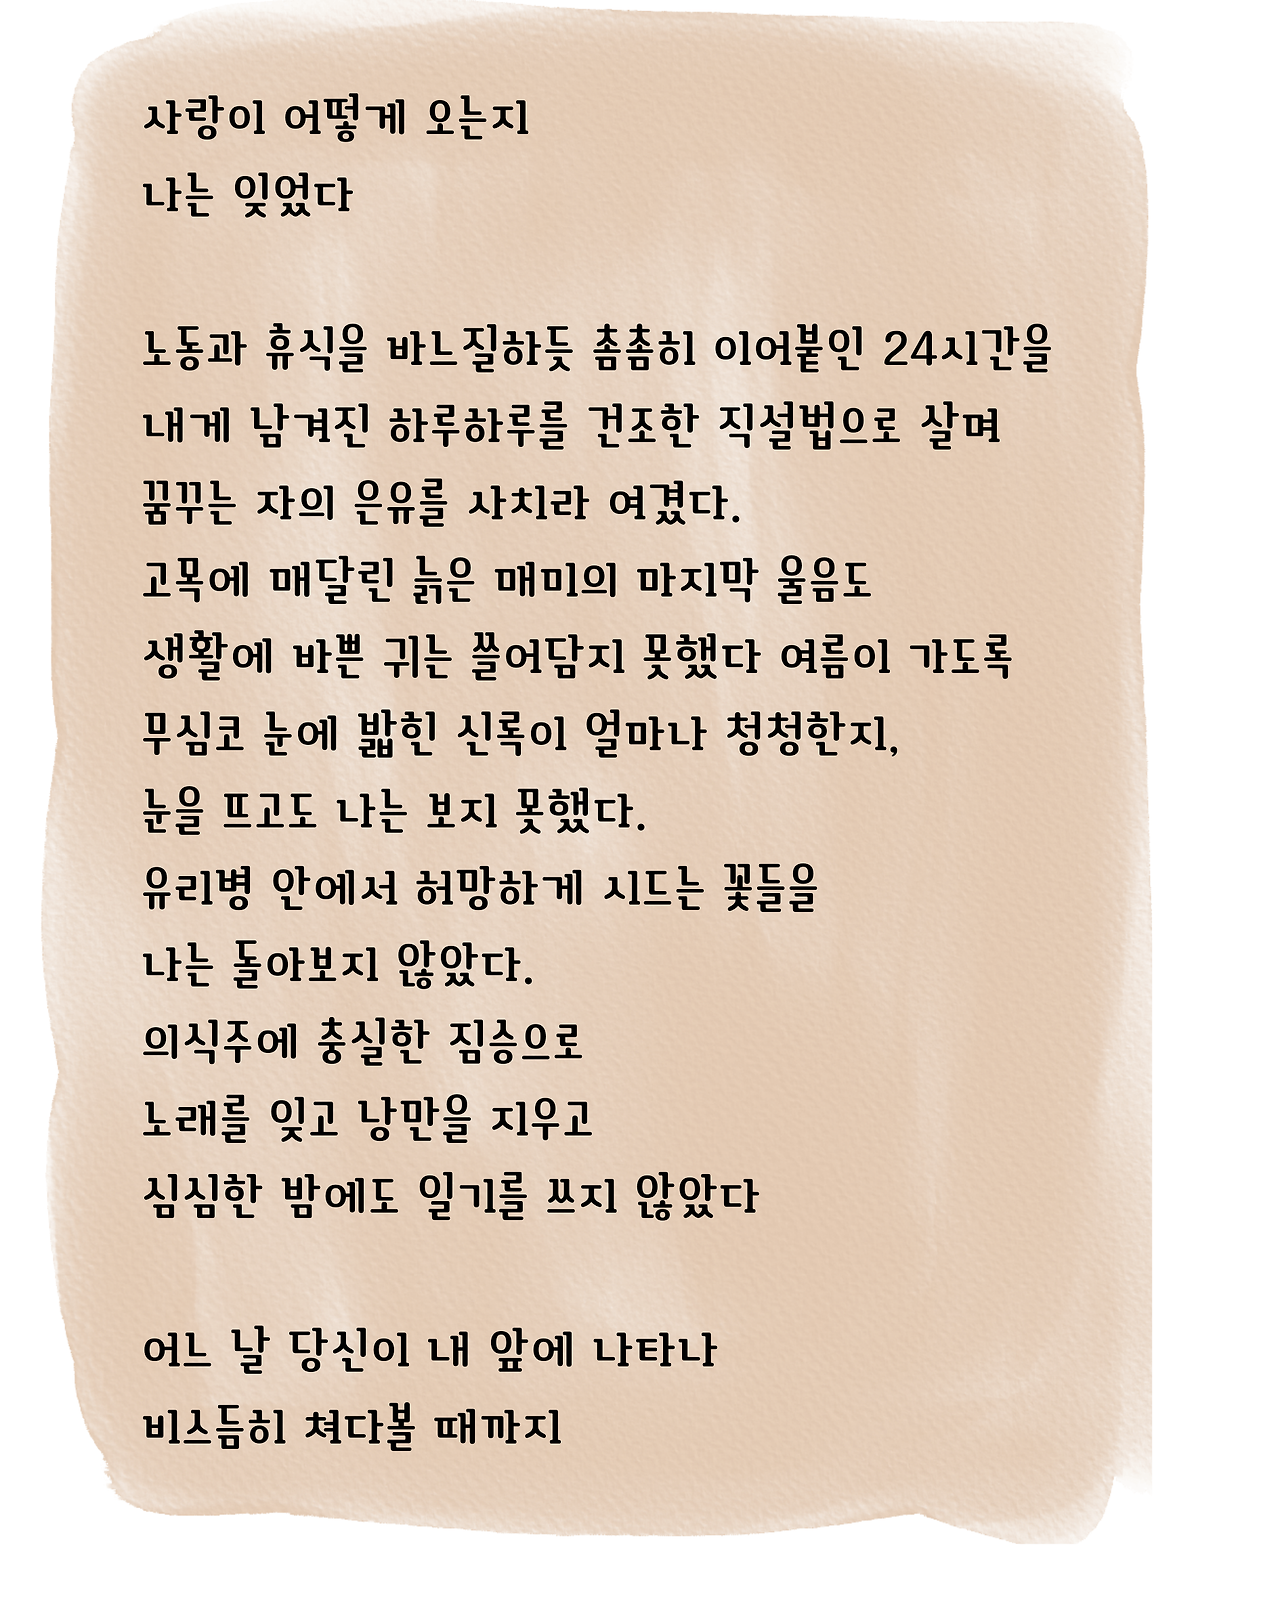 사랑이 어떻게 오는지
나는 잊었다
노동과 휴식을 바느질하듯 촘촘히 이어붙인 24시간을
내게 남겨진 하루하루를 건조한 직설법으로 살며
꿈꾸는 자의 은유를 사치라 여겼다.
고목에 매달린 늙은 매미의 마지막 울음도
생활에 바쁜 귀는 쓸어담지 못했다 여름이 가도록
무심코 눈에 밟힌 신록이 얼마나 청청한지,
눈을 뜨고도 나는 보지 못했다.
유리병 안에서 허망하게 시드는 꽃들을
나는 돌아보지 않았다.
의식주에 충실한 짐승으로
노래를 잊고 낭만을 지우고
심심한 밤에도 일기를 쓰지 않았다
어느 날 당신이 내 앞에 나타나
비스듬히 쳐다볼 때까지